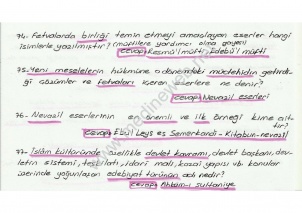 74. Fetvalarda birliği temin etmeyi amaçlayan eserler hangi
isimlerle yazılmıştır? (müftilere yardımcı olma gayesi
cevap: Resmü'l müfti, Edebü'l müfti
75. Yeni meselelerin hükmüne o dönemdeki müctehidin getirdi-
ği çözümler ve fetvaları içeren eserlere ne denir?
cevap: Nevazil eserleri
76. Nevazil eserlerinin önemli ve ilk örneği kime ait-
tir?
cevap: Ebül Leys es Semerkandi - Kitabün-nevazil
77. İslam kültüründe özellikle devlet kavramı, devlet başkanı, dev-
letin sistemi, teşkilatı, idari mali, kazai yapısı vb. konular
üzerinde yoğunlaşan edebiyat türünün adı nedir?
cevap: Ahkam-ı sultaniye